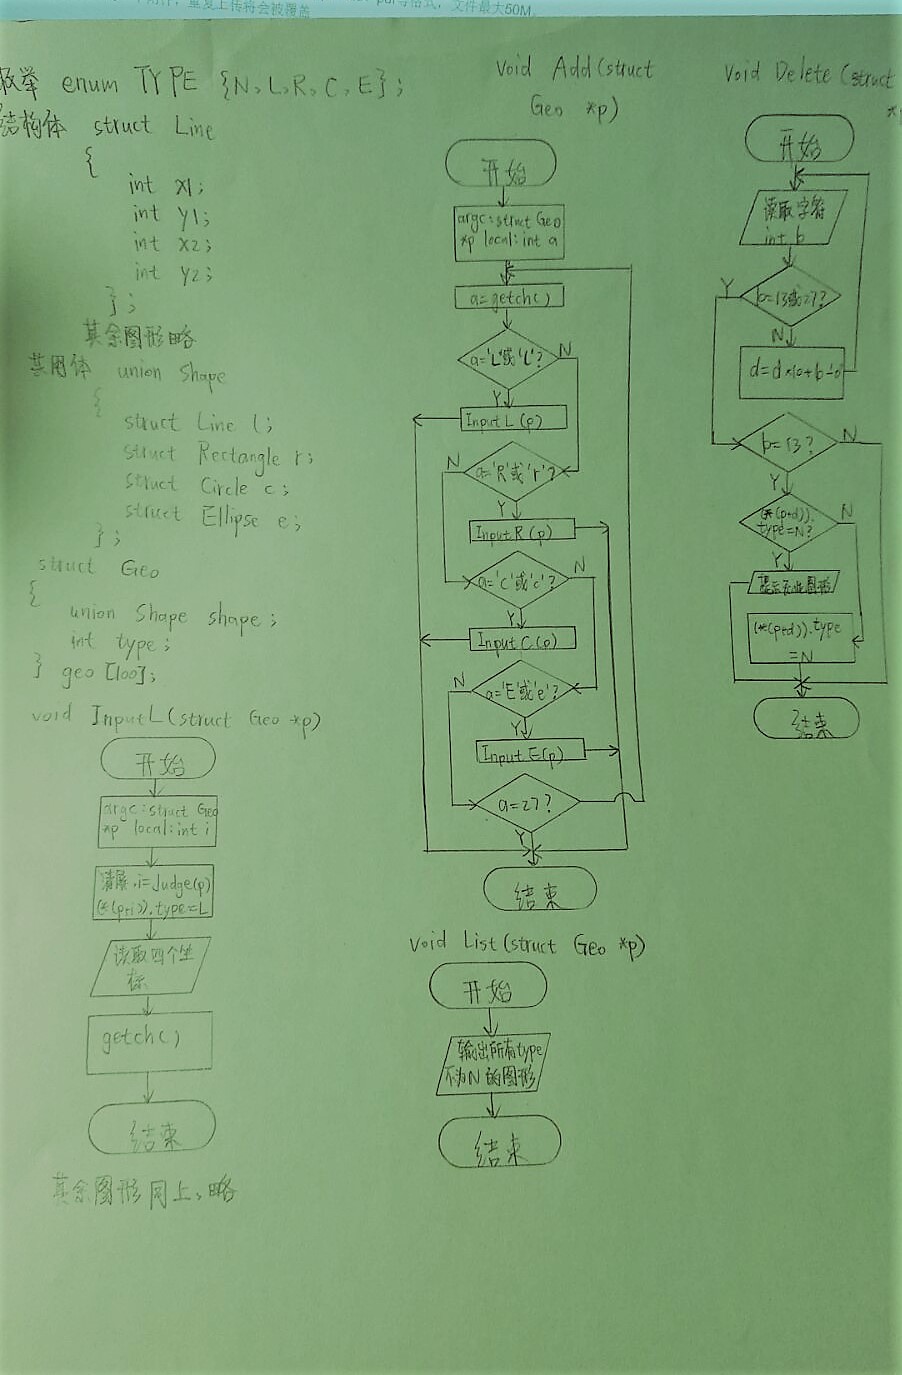 重复上传将会被覆盖
pdf等格式，文件最大50M。
枚举 enum TYPE {N,L,R,C,E};
结构体 struct Line
{
int x1;
int y1;
int x2;
int y2;
};
其余图形略
共用体 union Shape
{
struct Line l;
struct Rectangle r;
struct Circle c;
struct Ellipse e;
};
struct Geo
{
union Shape shape;
int type;
} geo[100];
void InputL(struct Geo *p)
开始
argc:struct Geo
*p local:int i
清屏,i=Judge(p)
(*(p+i)).type=L
读取四个坐
标
getch()
结束
其余图形同上,略
void Add(struct
Geo *p)
开始
argc:struct Geo
*p local:int a
a=getch()
a='L'或'l'?
N
Y
InputL(p)
a='R'或'r'?
N
Y
InputR(p)
a='C'或'c'?
N
Y
InputC(p)
a='E'或'e'?
N
Y
InputE(p)
a=27?
Y
结束
void List(struct Geo *p)
开始
输出所有type
不为N的图形
结束
void Delete(struct
开始
读取字符
int b
b=13或27?
Y
N
d=d*10+b-'0'
b=13?
N
Y
(*(p+d)).
type=N?
N
Y
提示无此图形
(*(p+d)).type
=N
结束